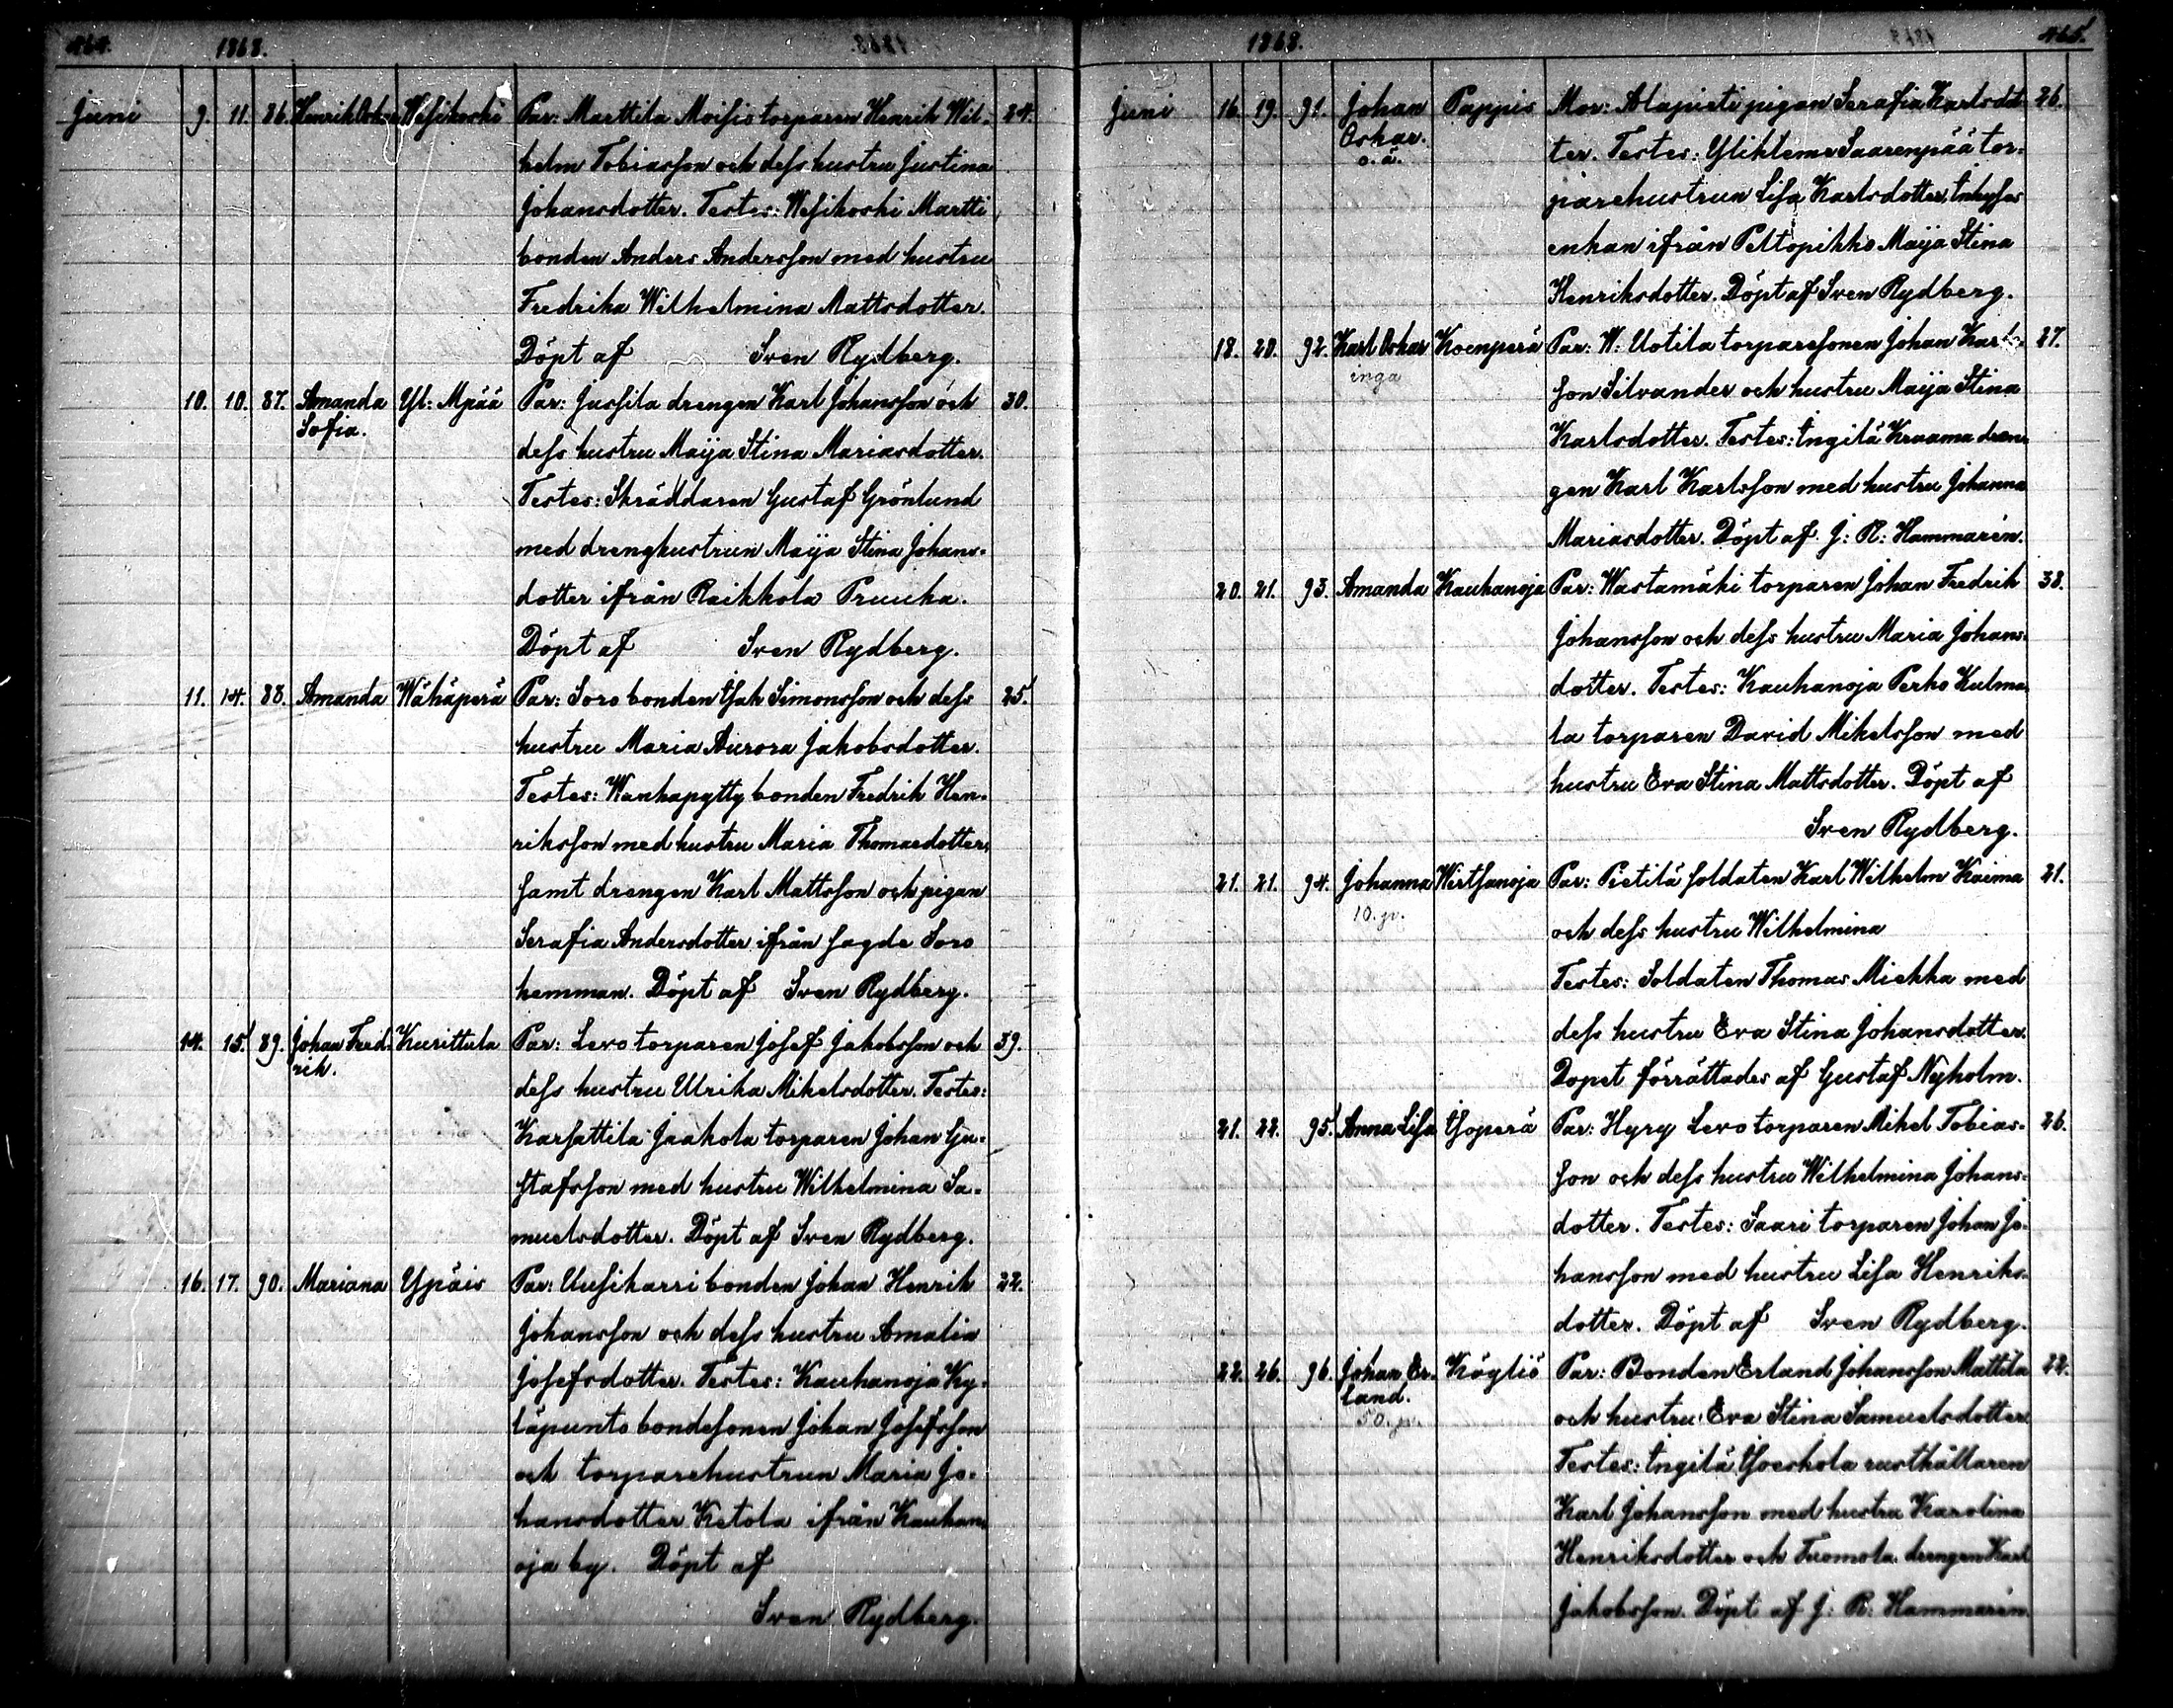 464. 1868.
Juni 9. 11. 86. Henrik Osk. Wesikoski Par: Marttila Moisis torparen Henrik Wil- 24.
helm Tobiasson och dess hustru Justina
Johansdotter. Testes: Wesikoski Martti
bonden Anders Andersson med hustru
Fredrika Wilhelmina Mattsdotter.
Döpt af Sven Rydberg.
10. 10. 87. Amanda Yl: Mpää Par: Jussila drengen Karl Johansson och 30.
Sofia. dess hustru Maija Stina Mariasdotter.
Testes: Skräddaren Gustaf Grönlund
med drenghustrun Maija Stina Johans-
dotter ifrån Raikkola Pruuka.
Döpt af Sven Rydberg.
11. 14. 88. Amanda Wähäperä Par: Soro bonden Isak Simonsson och dess 25.
hustru Maria Aurora Jakobsdotter.
Testes: Wanhapytty bonden Fredrik Hen-
riksson med hustru Maria Thomasdotter,
samt drengen Karl Mattsson och pigan
Serafia Andersdotter ifrån sagde Soro
hemman. Döpt af Sven Rydberg.
14. 15. 89. Johan Fred- Kurittula Par: Levo torparen Josef Jakobsson och 39.
rik. dess hustru Ulrika Mikelsdotter. Testes:
Karsattila Jaakola torparen Johan Gu-
stafsson med hustru Wilhelmina Sa-
muelsdotter. Döpt af Sven Rydberg.
16. 17. 90. Mariana Ypäis Par: Uusikarri bonden Johan Henrik 22.
Johansson och dess hustru Amalia
Josefsdotter. Testes: Kauhanoja Ky-
läpunto bondesonen Johan Josefsson
och torparehustrun Maria Jo-
hansdotter Ketola ifrån Kauhan-
oja by. Döpt af
Sven Rydberg.
1868. 465.
Juni 16. 19. 91. Johan Pappis Mor: Alapieti pigan Serafia Karlsdot- 26.
Oskar. ter. Testes: Ylikleme Saarenpää tor-
o. ä. parehustrun Lisa Karlsdotter, Inhyses
enkan ifrån Peltopikko Maija Stina
Henriksdotter. Döpt af Sven Rydberg.
18. 20. 92. Karl Oskar Koenperä Par: W: Uotila torparesonen Johan Karls- 27.
inga son Silvander och hustru Maija Stina
Karlsdotter. Testes: Ingilä Kraama dren-
gen Karl Karlsson med hustru Johanna
Mariasdotter. Döpt af J: R: Hammarén.
20. 21. 93. Amanda Kauhanoja Par: Wastamäki torparen Johan Fredrik 38.
Johansson och dess hustru Maria Johans-
dotter. Testes: Kauhanoja Perho Kulma-
la torparen David Mikelsson med
hustru Eva Stina Mattsdotter. Döpt af
Sven Rydberg.
21. 21. 94. Johanna Wirtsanoja Par: Pietilä soldaten Karl Wilhelm Kaima 21.
10. jr. och dess hustru Wilhelmina
Testes: Soldaten Thomas Miekka med
dess hustru Eva Stina Johansdotter.
Dopet förrättades af Gustaf Nyholm.
21. 22. 95. Anna Lisa Isoperä Par: Hyry Levo torparen Mikel Tobias- 26.
son och dess hustru Wilhelmina Johans-
dotter. Testes: Saari torparen Johan Jo-
hansson med hustru Lisa Henriks-
dotter. Döpt af Sven Rydberg.
22. 26. 96. Johan Er- Köyliö Par: Bonden Erland Johansson Mattila 22.
land. och hustru Eva Stina Samuelsdotter
Testes: Ingilä Isoeskola rusthållaren
Karl Johansson med hustru Karolina
Henriksdotter och Tuomola drengen Karl
Jakobsson. Döpt af J: R: Hammarén.